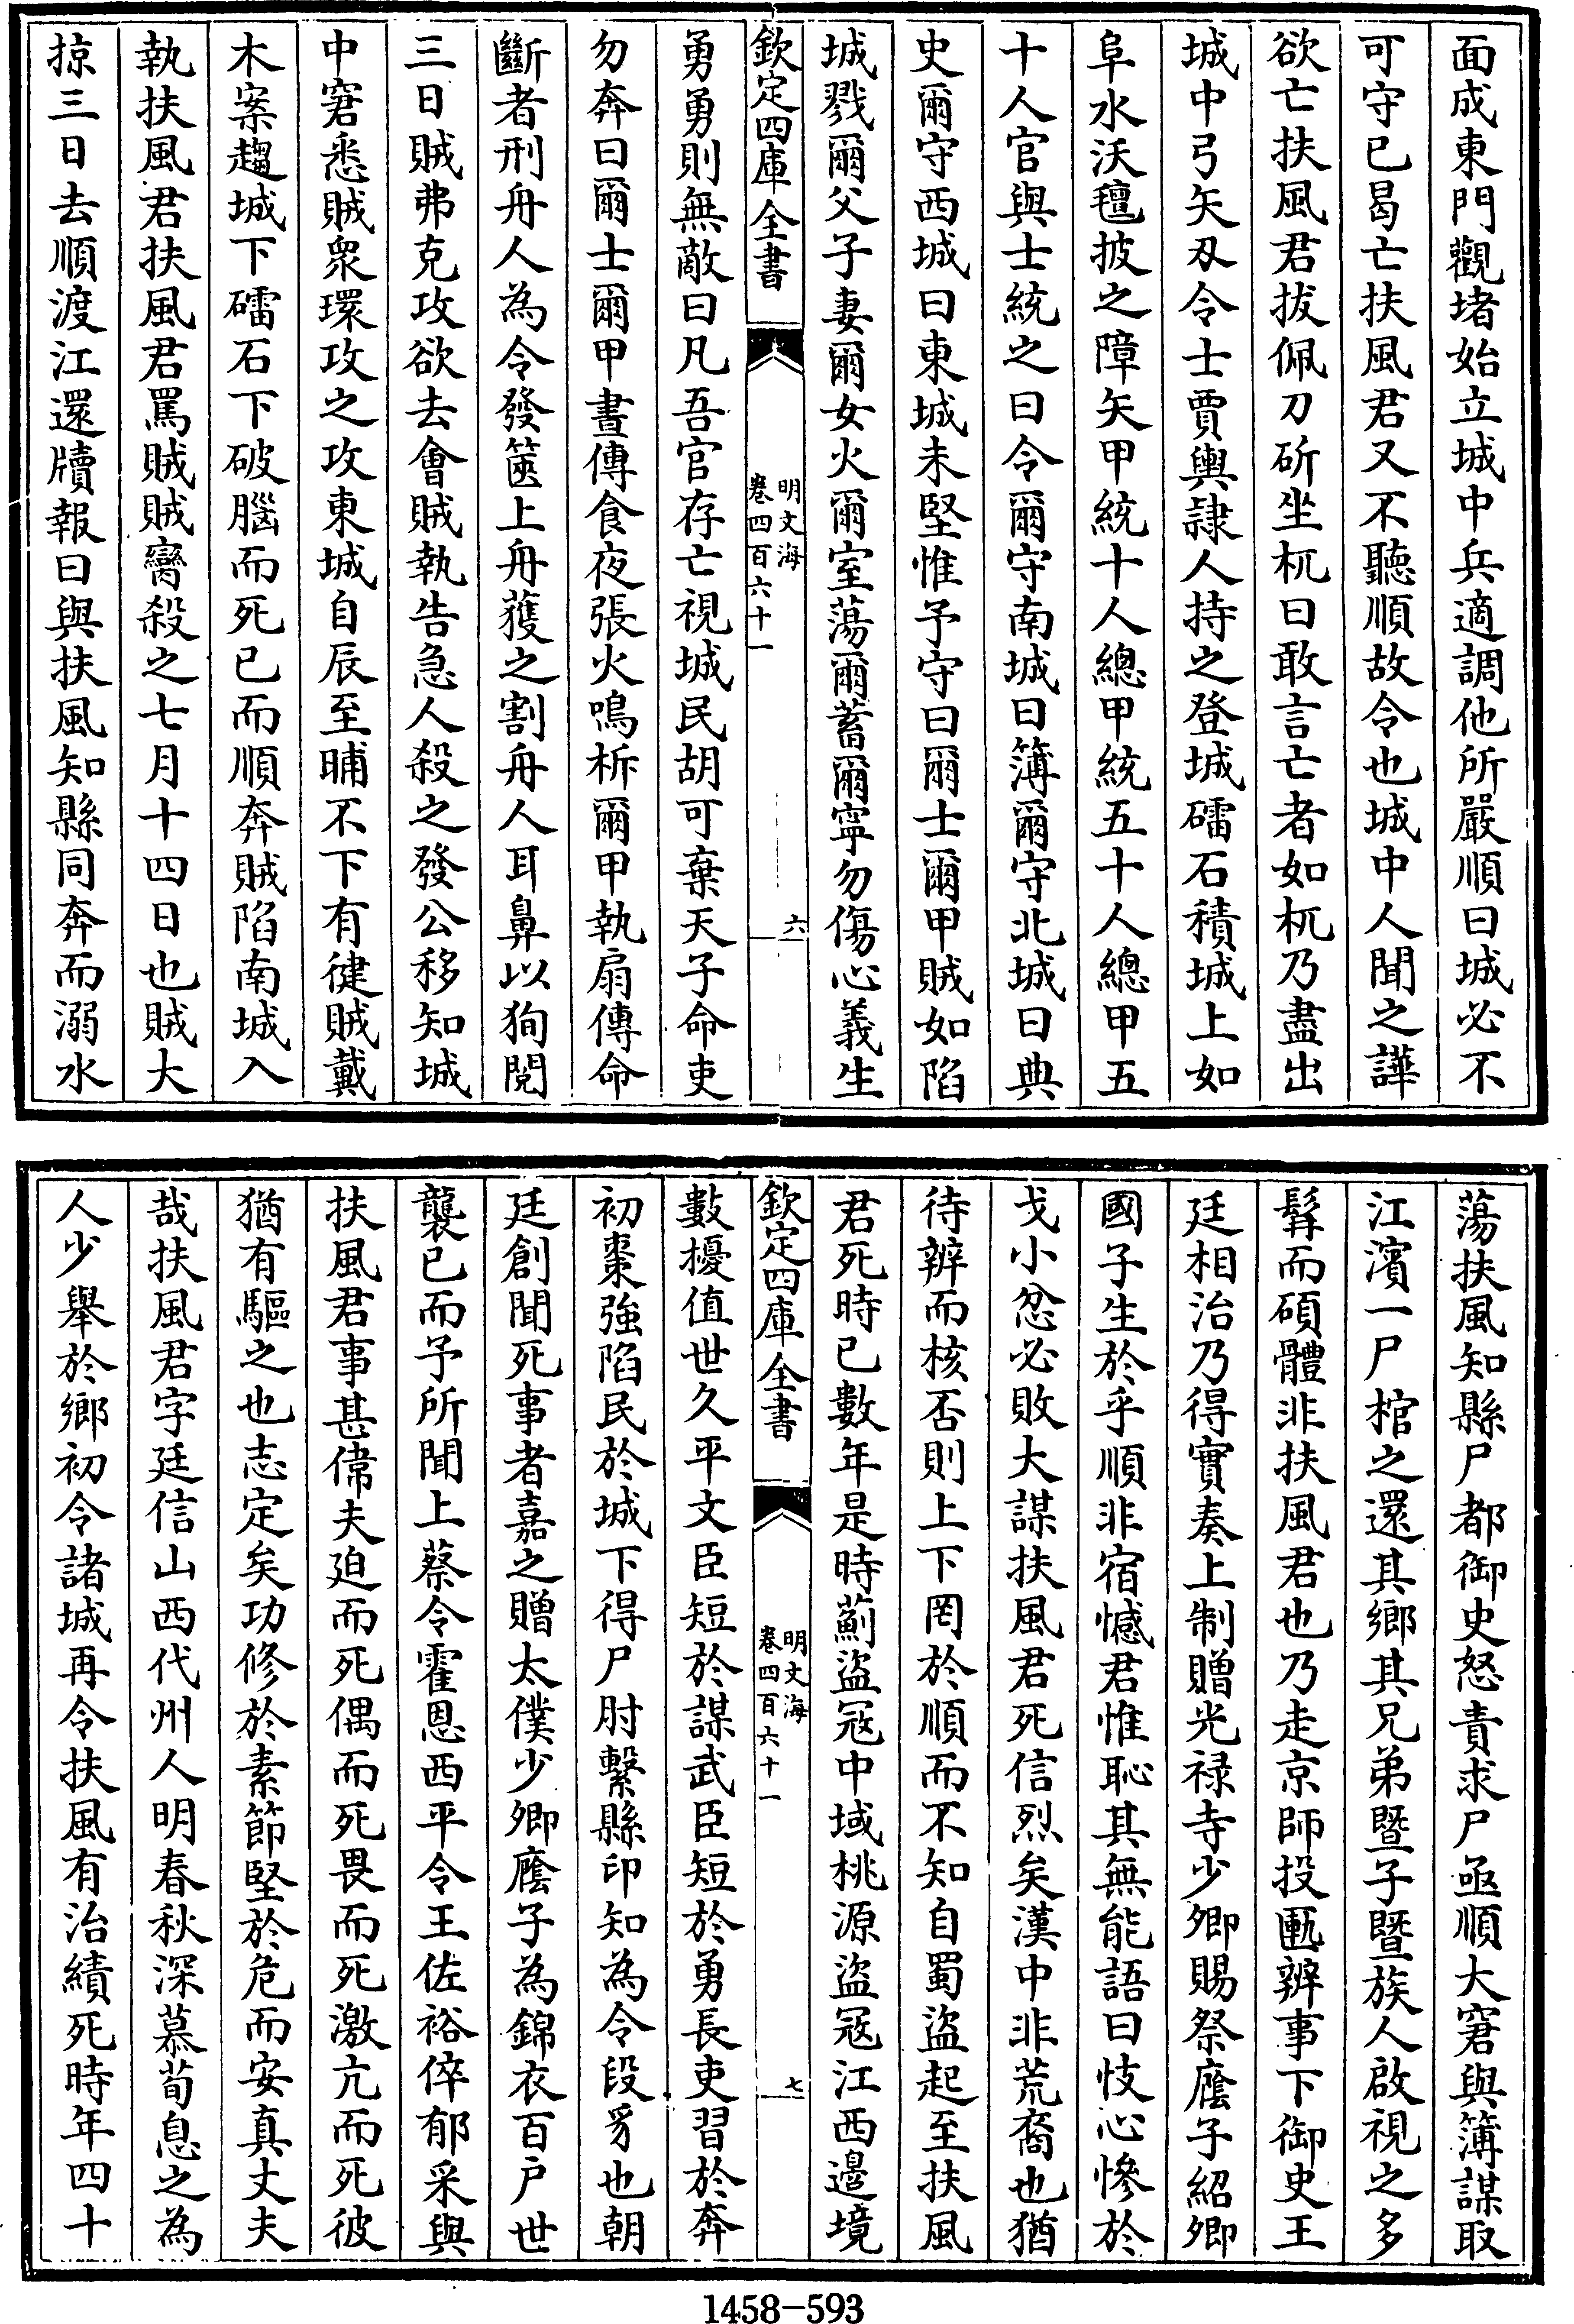 面成東門觀堵始立城中兵適調他所嚴順曰城必不
可守已曷亡扶風君又不聽順故令也城中人聞之譁
欲亡扶風君拔佩刀斫坐杌曰敢言亡者如杌乃盡出
城中弓矢刄令士賈輿隷人持之登城礌石積城上如
阜水沃氊披之障矢甲統十人總甲統五十人總甲五
十人官與士統之曰令爾守南城曰簿爾守北城曰典
史爾守西城曰東城未堅惟予守曰爾士爾甲賊如陷
城戮爾父子妻爾女火爾室蕩爾蓄爾寜勿傷心義生
欽定四庫全書
明文海
卷四百六十一
六
勇勇則無敵曰凡吾官存亡視城民胡可棄天子命吏
勿奔曰爾士爾甲晝傳食夜張火鳴柝爾甲執扇傳命
斷者刑舟人為令發篋上舟獲之割舟人耳鼻以狥閱
三日賊弗克攻欲去會賊執告急人殺之發公移知城
中窘悉賊衆環攻之攻東城自辰至晡不下有健賊戴
木案趨城下礌石下破腦而死已而順奔賊陷南城入
執扶風君扶風君罵賊賊臠殺之七月十四日也賊大
掠三日去順渡江還牘報曰與扶風知縣同奔而溺水
蕩扶風知縣尸都御史怒責求尸亟順大窘與簿謀取
江濱一尸棺之還其鄉其兄弟暨子暨族人啟視之多
髯而碩體非扶風君也乃走京師投匭辨事下御史王
廷相治乃得實奏上制贈光禄寺少卿賜祭廕子紹卿
國子生於乎順非宿憾君惟恥其無能語曰忮心慘於
戈小忿必敗大謀扶風君死信烈矣漢中非荒裔也猶
待辨而核否則上下罔於順而不知自蜀盜起至扶風
君死時已數年是時薊盜宼中域桃源盜宼江西邊境
欽定四庫全書
明文海
卷四百六十一
七
數擾值世久平文臣短於謀武臣短於勇長吏習於奔
初棗強陷民於城下得尸肘繫縣印知為令段豸也朝
廷創聞死事者嘉之贈太僕少卿廕子為錦衣百戶世
襲已而予所聞上蔡令霍恩西平令王佐裕倅郁采與
扶風君事甚偉夫迫而死偶而死畏而死激亢而死彼
猶有驅之也志定矣功修於素節堅於危而安真丈夫
哉扶風君字廷信山西代州人明春秋深慕荀息之為
人少舉於鄉初令諸城再令扶風有治績死時年四十
1458-593